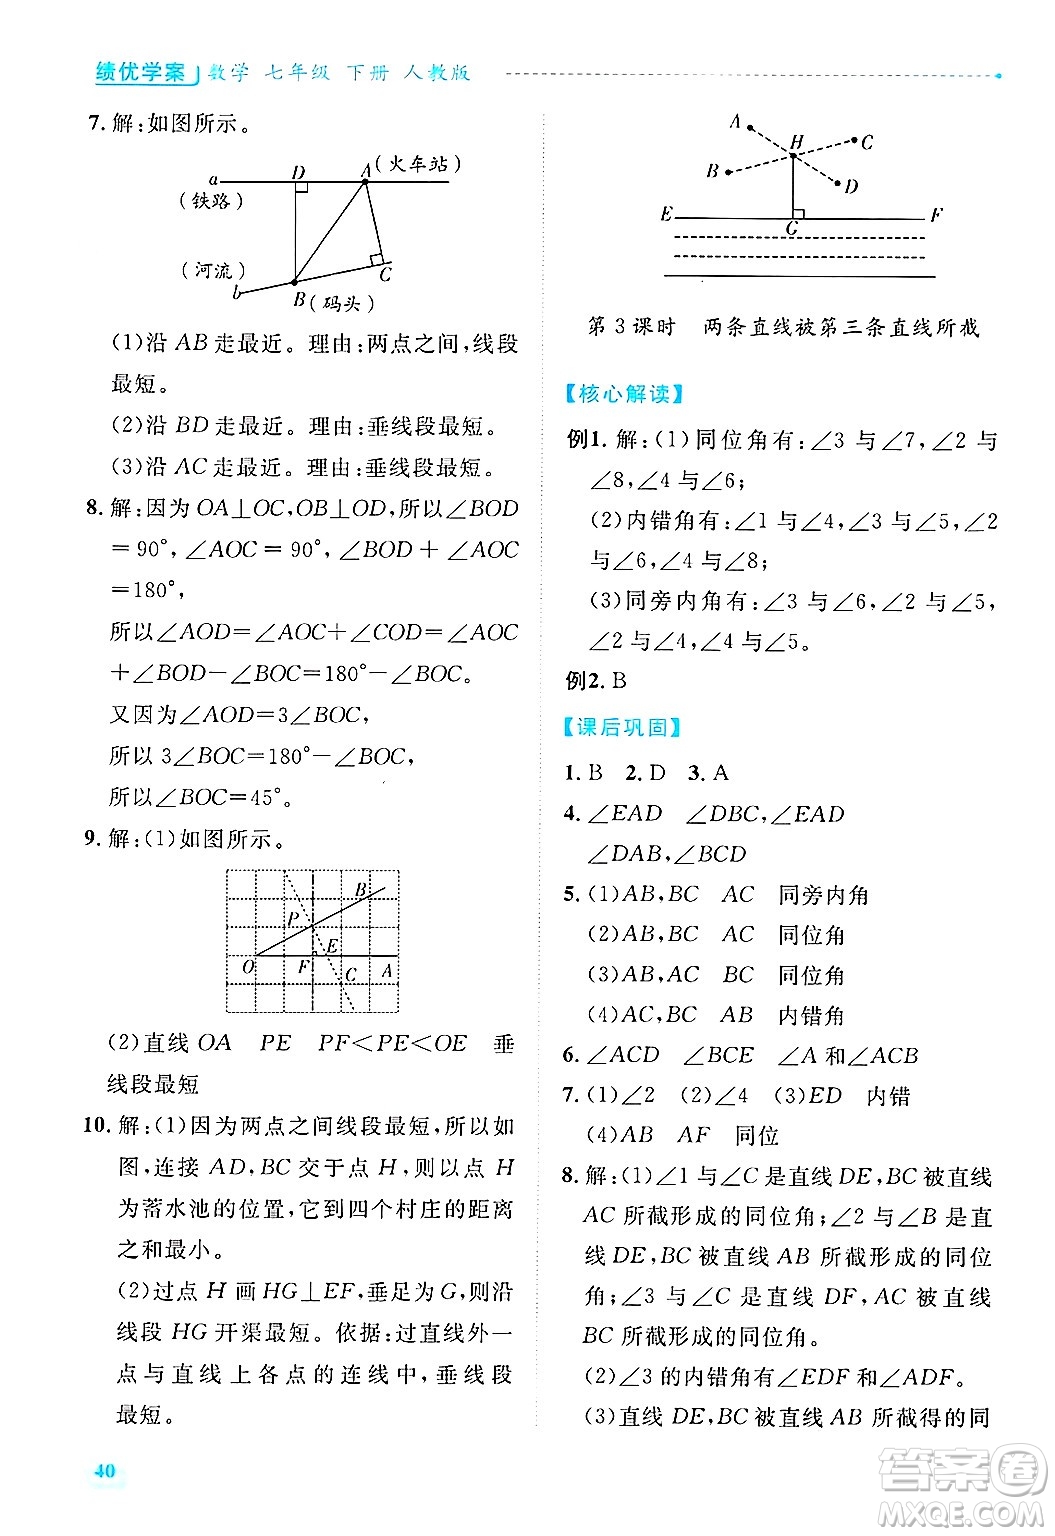 绩优学案 数学 七年级 下册 人教版
7. 解:如图所示。
a D A (火车站)
(铁路)
(河流)
b B (码头) C
(1)沿 AB 走最近。理由:两点之间,线段
最短。
(2)沿 BD 走最近。理由:垂线段最短。
(3)沿 AC 走最近。理由:垂线段最短。
8. 解:因为 OA⊥OC,OB⊥OD,所以∠BOD
=90°,∠AOC=90°,∠BOD+∠AOC
=180°,
所以∠AOD=∠AOC+∠COD=∠AOC
+∠BOD-∠BOC=180°-∠BOC。
又因为∠AOD=3∠BOC,
所以 3∠BOC=180°-∠BOC,
所以∠BOC=45°。
9. 解:(1)如图所示。
B
P
E
O F C A
(2)直线 OA PE PF<PE<OE 垂
线段最短
10. 解:(1)因为两点之间线段最短,所以如
图,连接 AD,BC 交于点 H,则以点 H
为蓄水池的位置,它到四个村庄的距离
之和最小。
(2)过点 H 画 HG⊥EF,垂足为 G,则沿
线段 HG 开渠最短。依据:过直线外一
点与直线上各点的连线中,垂线段
最短。
40
A H C
B D
E G F
第 3 课时 两条直线被第三条直线所截
【核心解读】
例1. 解:(1)同位角有:∠3 与∠7,∠2 与
∠8,∠4 与∠6;
(2)内错角有:∠1 与∠4,∠3 与∠5,∠2
与∠6,∠4 与∠8;
(3)同旁内角有:∠3 与∠6,∠2 与∠5,
∠2 与∠4,∠4 与∠5。
例2. B
【课后巩固】
1. B 2. D 3. A
4. ∠EAD ∠DBC,∠EAD
∠DAB,∠BCD
5. (1)AB,BC AC 同旁内角
(2)AB,BC AC 同位角
(3)AB,AC BC 同位角
(4)AC,BC AB 内错角
6. ∠ACD ∠BCE ∠A 和∠ACB
7. (1)∠2 (2)∠4 (3)ED 内错
(4)AB AF 同位
8. 解:(1)∠1 与∠C 是直线 DE,BC 被直线
AC 所截形成的同位角;∠2 与∠B 是直
线 DE,BC 被直线 AB 所截形成的同位
角;∠3 与∠C 是直线 DF,AC 被直线
BC 所截形成的同位角。
(2)∠3 的内错角有∠EDF 和∠ADF。
(3)直线 DE,BC 被直线 AB 所截得的同
答案圈
MXQE.COM